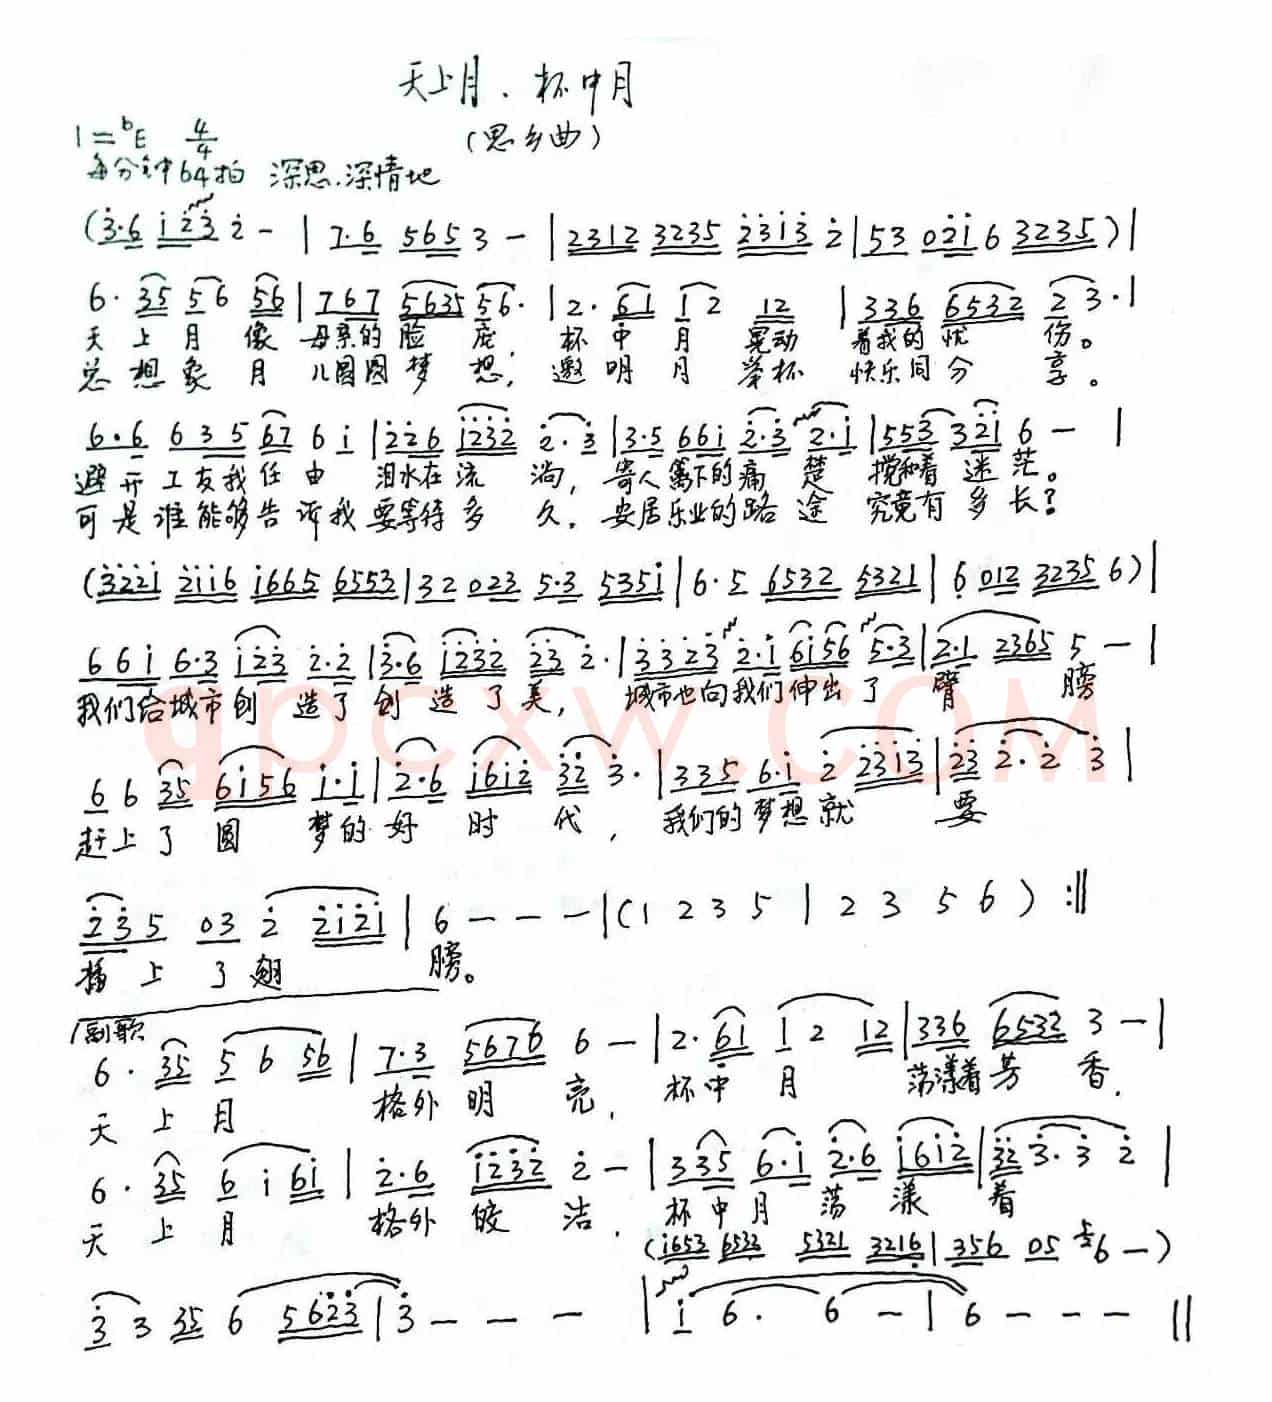 天上月、杯中月
(思乡曲)
1=bE 4/4
每分钟64拍 深思.深情地
(3·6 i23 2 - | 7·6 565 3 - | 2312 3235 2313 2 | 53 02i 6 3235) |
6· 35 56 56 | 767 5635 56· | 2· 61 12 12 | 336 6532 23· |
天上月像母亲的脸庞, 杯中月晃动着我的忧伤。
总想象月儿圆圆梦想, 邀明月举杯快乐同分享。
6·6 635 67 6 i | 226 i232 2·3 | 3·5 66i 2·3 2·i | 553 32i 6 - |
避开工友我任由泪水在流淌, 寄人篱下的痛楚搅和着迷茫。
可是谁能够告诉我要等待多久. 安居乐业的路途究竟有多长?
(322i 2ii6 i665 6553 | 32 023 5·3 535i | 6·5 6532 5321 | 6 012 3235 6) |
66i 6·3 i23 2·2 | 3·6 i232 23 2· | 3323 2·i 6i56 5·3 | 2·1 2365 5 - |
我们给城市创造了创造了美, 城市也向我们伸出了臂膀
6 6 35 6i56 i·i | 2·6 i6i2 32 3· | 335 6·i 2 23i3 | 23 2·2 3 |
赶上了圆梦的好时代, 我们的梦想就要
235 03 2 2i2i | 6 - - - | (1 2 3 5 | 2 3 5 6) :||
插上了翅膀。
副歌
6· 35 5 6 56 | 7·3 5676 6 - | 2· 61 1 2 12 | 336 6532 3 - |
天上月格外明亮, 杯中月荡漾着芳香.
6· 35 6 i 6i | 2·6 i232 2 - | 335 6·i 2·6 i6i2 | 32 3·3 2 |
天上月格外皎洁, 杯中月荡漾着
(i653 6532 5321 3216 | 356 05 56 -)
3 3 35 6 5623 | 3 - - - | i 6· 6 - | 6 - - - ||
qpcxw.com